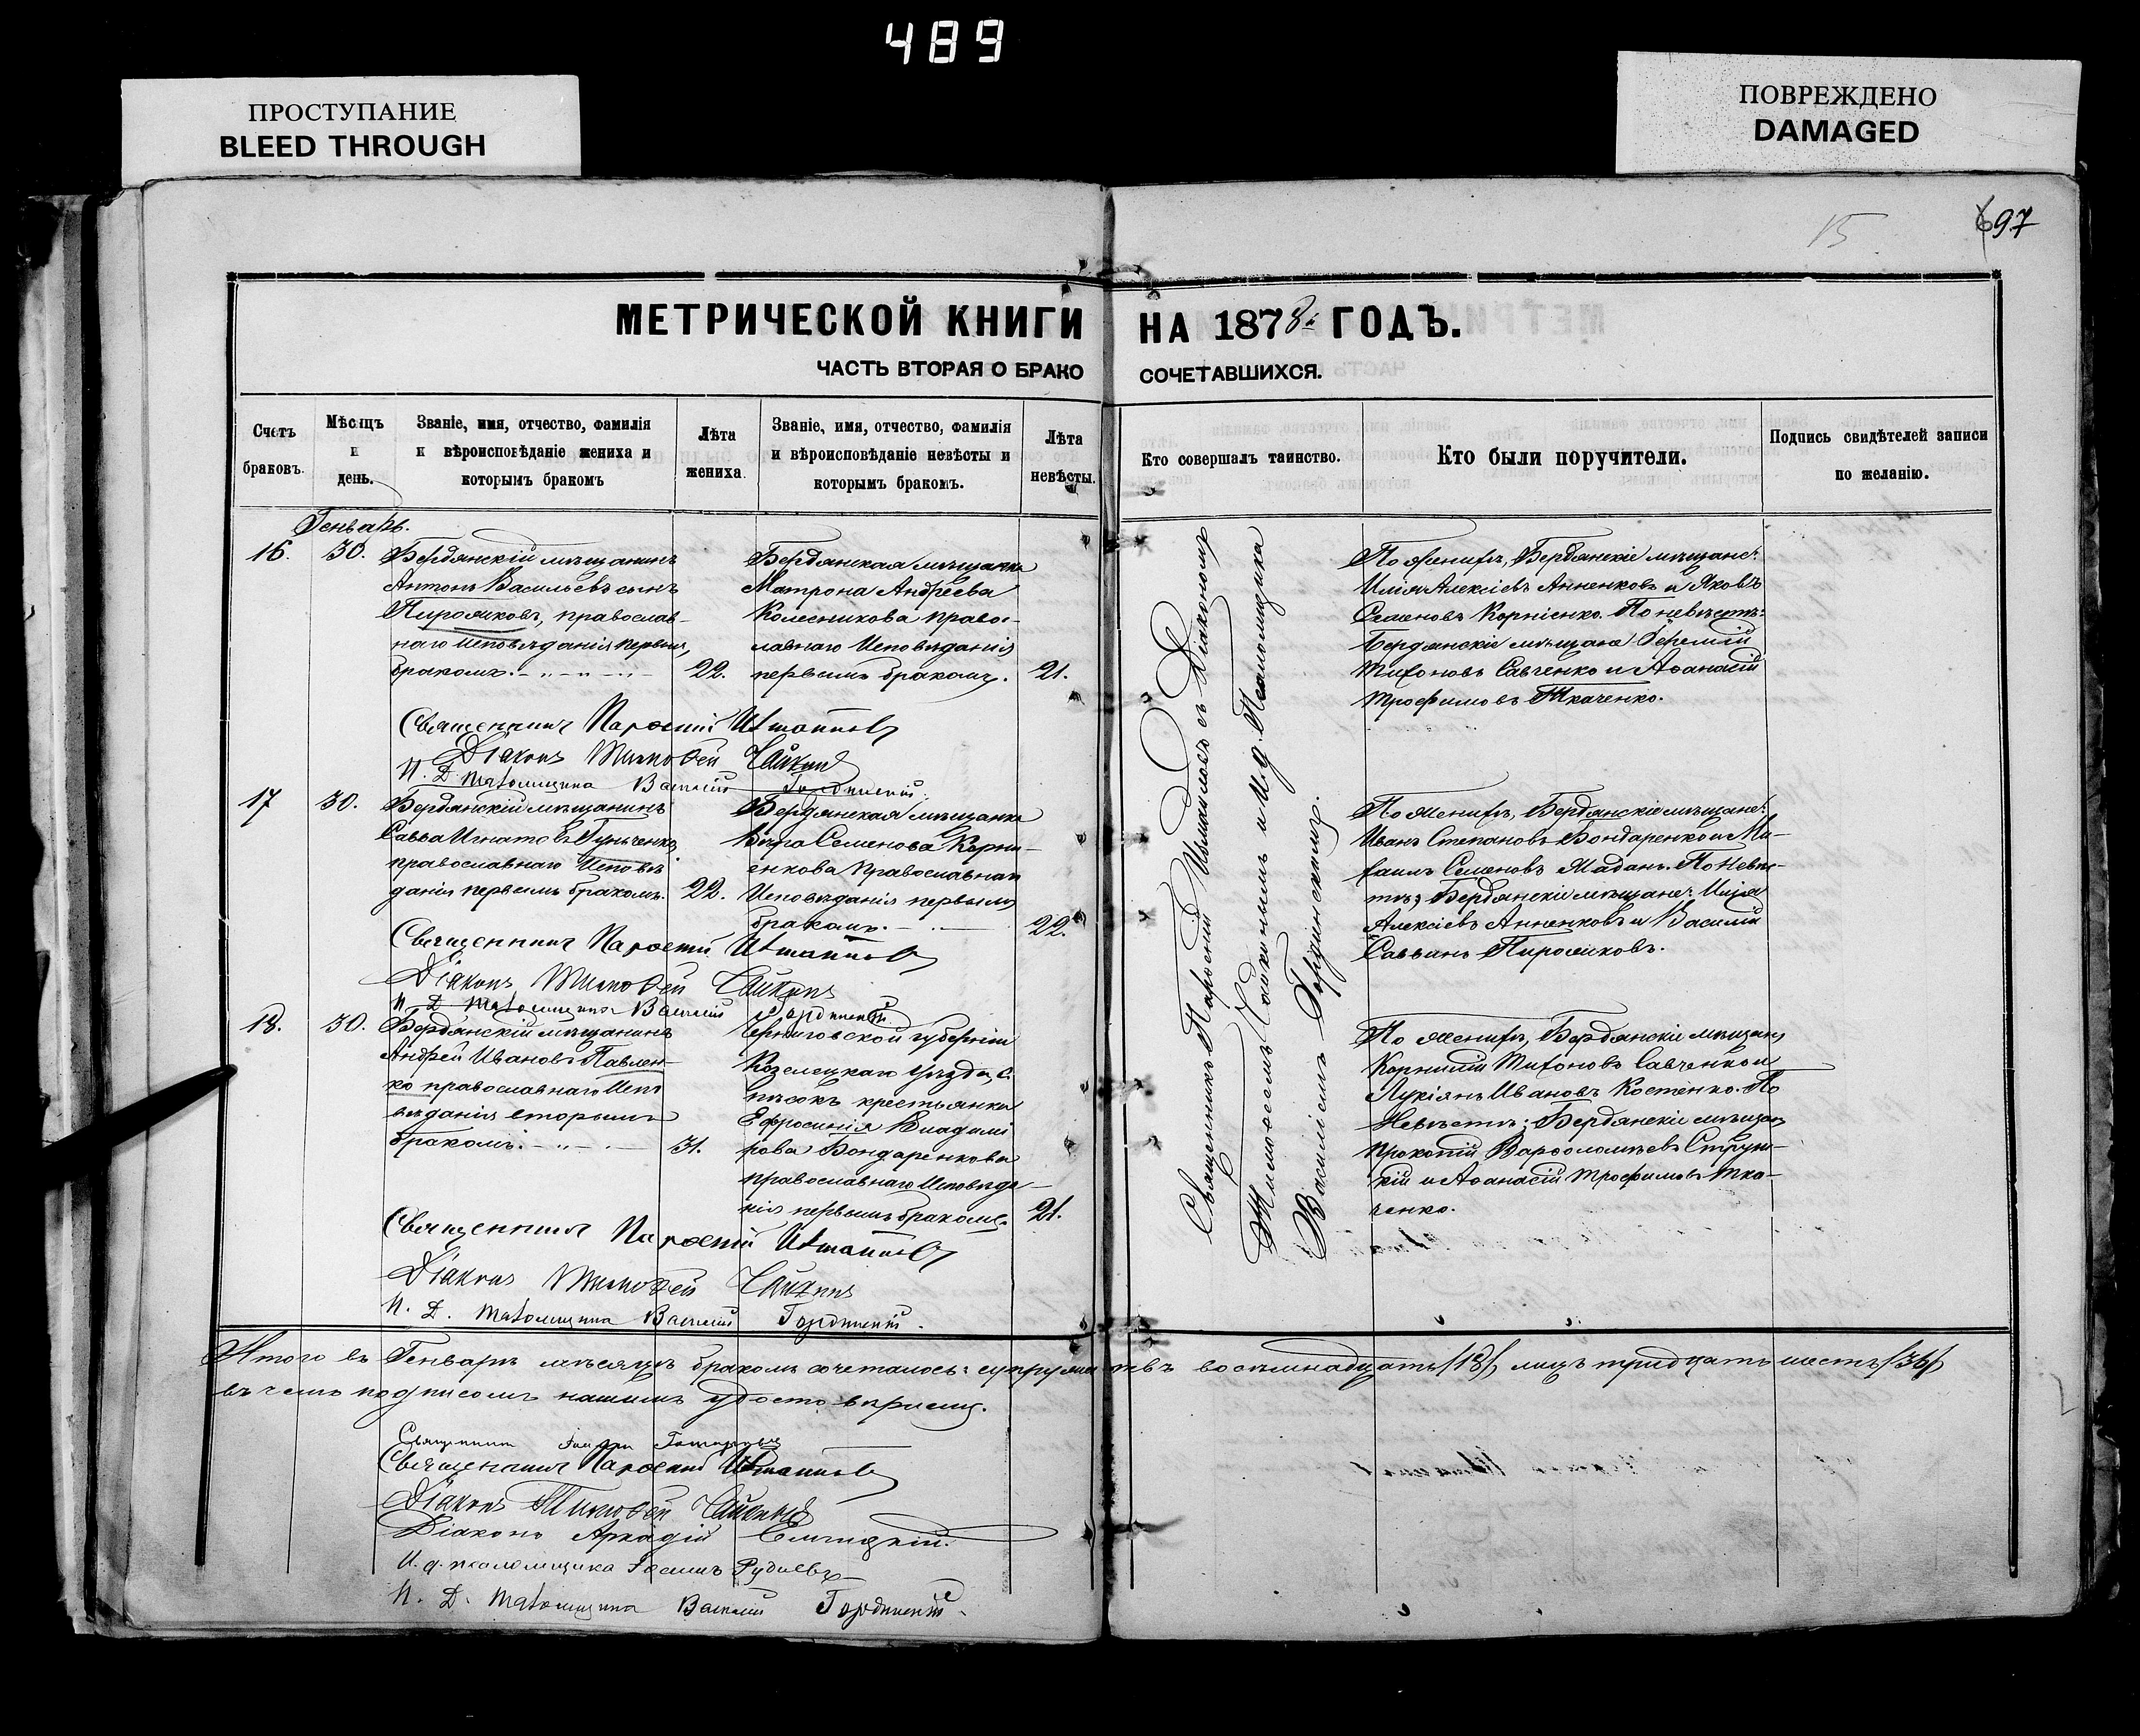 489
ПРОСТУПАНИЕ
BLEED THROUGH
ПОВРЕЖДЕНО
DAMAGED
15
697
МЕТРИЧЕСКОЙ КНИГИ НА 1878й ГОДЪ.
ЧАСТЬ ВТОРАЯ О БРАКО СОЧЕТАВШИХСЯ.
Счетъ
браковъ.
Мѣсяцъ
и
день.
Званіе, имя, отчество, фамилія
и вѣроисповѣданіе жениха и
которымъ бракомъ
Лѣта
жениха.
Званіе, имя, отчество, фамилія
и вѣроисповѣданіе невѣсты и
которымъ бракомъ.
Лѣта
невѣсты.
Кто совершалъ таинство.
Кто были поручители.
Подпись свидѣтелей записи
по желанію.
Генварь.
16.
30.
Бердянскій мѣщанинъ
Антонъ Васильевъ сынъ
Пирожковъ, православ-
наго исповѣданія первымъ
бракомъ.
22.
Бердянская мѣщанка
Матрона Андреева
Колесникова право-
славнаго Исповѣданія
первымъ бракомъ.
21.
По женихѣ, Бердянскіе мѣщане:
Илія Алексіевъ Анненковъ и Яковъ
Семеновъ Корніенко. По невѣстѣ:
Бердянскіе мѣщане Іеремій
Тихоновъ Савченко и Аѳанасій
Трофимовъ Ткаченко.
Священникъ Парѳеній
Діаконъ Тимоѳей Чайкинъ
И. Д. Псаломщика Василій Гординскій.
17
30.
Бердянскій мѣщанинъ
Савва Игнатовъ
православнаго Исповѣ
данія первымъ бракомъ.
22.
Бердянская мѣщанка
Вѣра Семенова Корни-
енкова Православнаго
Исповѣданія первымъ
бракомъ.
22.
По женихѣ, Бердянскіе мѣщане:
Иванъ Степановъ Бондаренко и Ми-
хаилъ Семеновъ Мадан. По Невѣс-
тѣ, Бердянскіе мѣщане: Илія
Алексіевъ Анненковъ и Василій
Саввинъ Пирожковъ.
Священникъ Парѳеній
Діаконъ Тимоѳей Чайкинъ
И. Д. Псаломщика Василій Гординскій
18.
30.
Бердянскій мѣщанинъ
Андрей Ивановъ Павлен-
ко православнаго Испо
вѣданія вторымъ
бракомъ.
31.
Черниговской губерніи
Козелецкаго уѣзда, с.
крестьянка
Ефросинія Владимі
рова Бондаренкова
православнаго Исповѣда-
нія первымъ бракомъ.
21.
По женихѣ, Бердянскіе мѣщане
Корнилій Тихоновъ Савченко и
Лукіянъ Ивановъ Костенко. По
Невѣстѣ: Бердянскіе мѣщане
Прокопій Варѳоломѣевъ
и Аѳанасій Трофимовъ Тка-
ченко.
Священникъ Парѳеній
Діаконъ Тимоѳей Чайкинъ
И. Д. Псаломщика Василій Гординскій.
Священникъ Парѳеній съ Діакономъ
Тимоѳеемъ Чайкинымъ и И. д. Псаломщика
Василіемъ Гординскимъ.
Итого въ Генварѣ мѣсяцѣ бракомъ сочеталось: супружествъ восемнадцать /18/, лицъ тридцать шесть /36/
въ чемъ подписомъ нашимъ удостовѣряемъ.
Священникъ
Священникъ Парѳеній
Діаконъ Тимоѳей Чайкинъ
Діаконъ Аркадій
И. д. псаломщика Іоаннъ Рудневъ
И. Д. Псаломщика Василій Гординскій.